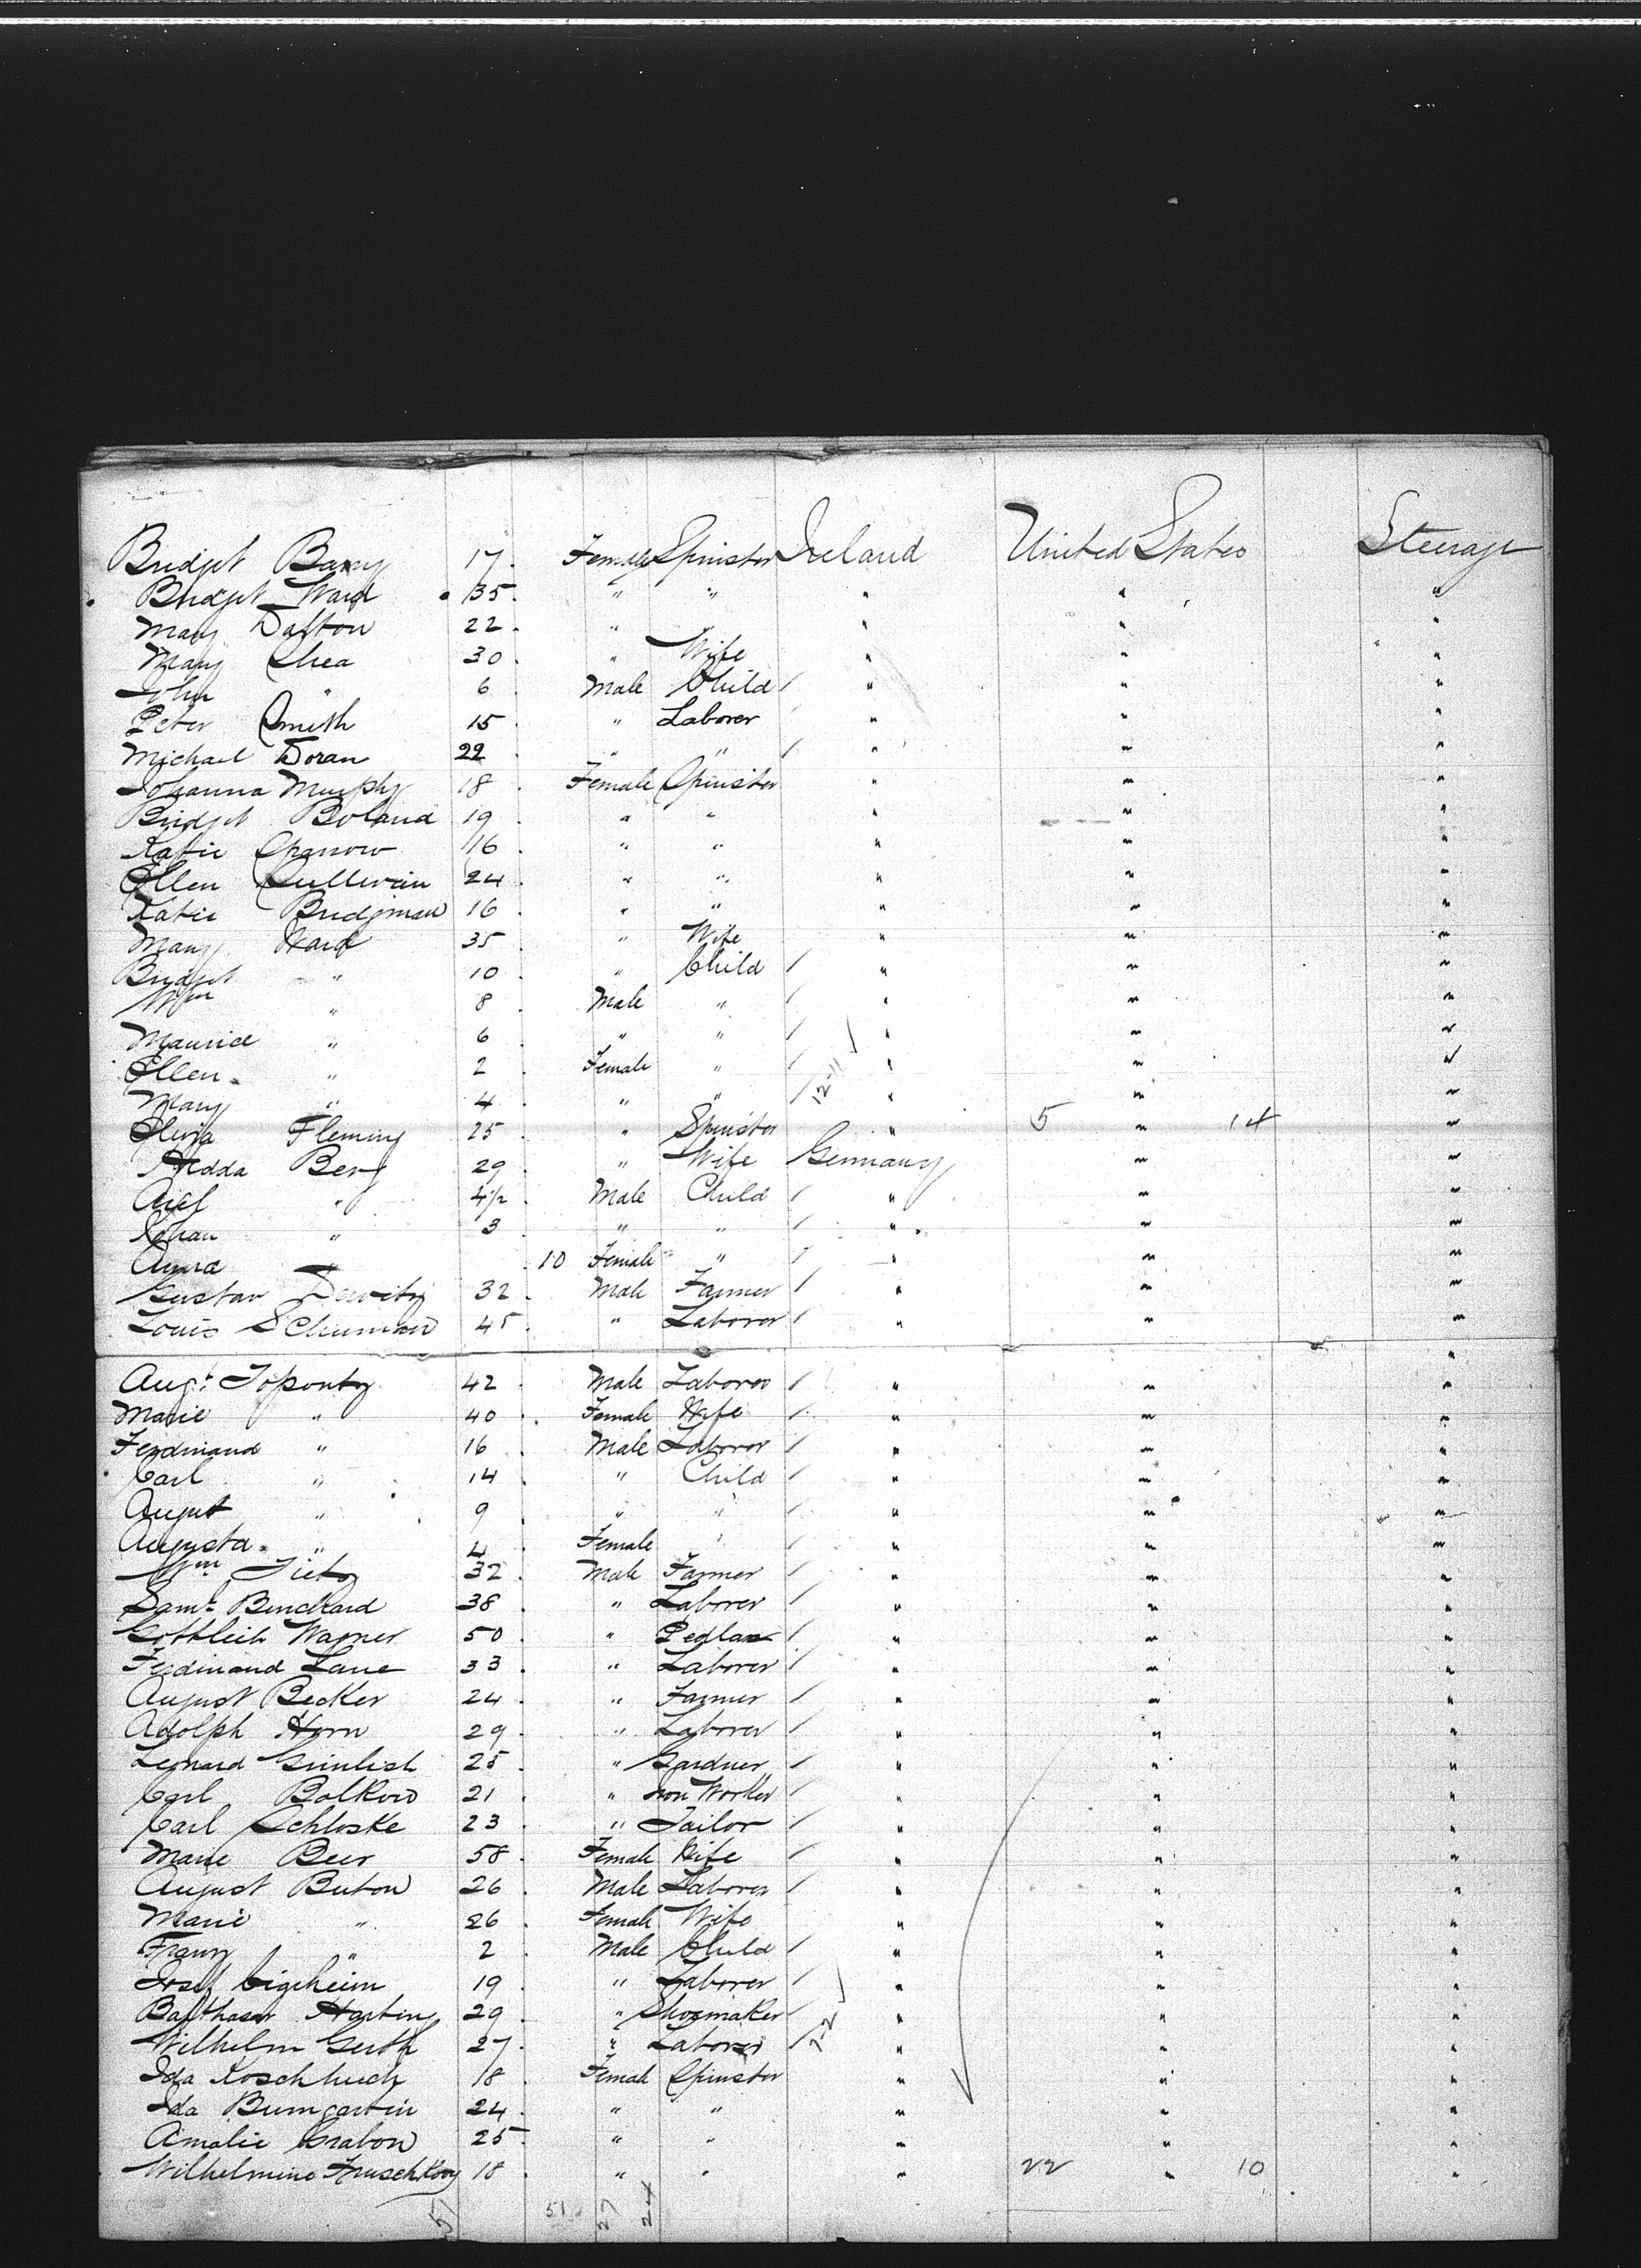 Bridget Barry 17 Female Spinster Ireland United States Steerage
Bridget Ward 35 " " " " "
Mary Dalton 22 " " " "
Mary Shea 30 " Wife " " "
John " 6 Male Child " " "
Peter Smith 15 " Laborer " " "
Michael Doran 22 " " " " "
Johanna Murphy 18 Female Spinster " " "
Bridget Boland 19 " " " " "
Katie Sparrow 16 " " " " "
Ellen Sullivan 24 " " " " "
Katie Bridgman 16 " " " " "
Mary Ward 35 " Wife " " "
Bridget " 10 " Child " " "
Wm " 8 Male " " " "
Maurice " 6 " " " " "
Ellen " 2 Female " " " "
Mary " 4 " " 12-11 " " "
Fleming 25 " Spinster " 5 " 14 "
Hedda Berg 29 " Wife Germany " "
" 4 1/2 Male Child " " "
Johan " 3 " " " " "
Anna " 10 Female " " " "
Gustav 32 Male Farmer " " "
Louis Schuman 45 " Laborer " " "
Augt. Toponty 42 Male Laborer " " "
Marie " 40 Female Wife " " "
Ferdinand " 16 Male Laborer " " "
Carl " 14 " Child " " "
August " 9 " " " " "
Augusta " 4 Female " " " "
Wm Tietz 32 Male Farmer " " "
Saml. 38 " Laborer " " "
Gottlieb Wagner 50 " Pedlar " " "
Ferdinand Lane 33 " Laborer " " "
August Becker 24 " Farmer " " "
Adolph Horn 29 " Laborer " " "
Leonard 25 " Gardner " " "
Carl Balkow 21 " Iron Worker " " "
Carl Schloske 23 " Tailor " " "
Marie Beer 58 Female Wife " " "
August Buton 26 Male Laborer " " "
Marie " 26 Female Wife " " "
Franz " 2 Male Child " " "
Josef 19 " Laborer " " "
Balthasar Harting 29 " Shoemaker " " "
Wilhelm Guth 27 " Laborer " " "
Ida 18 Female Spinster " " "
Ida Bumgartin 24 " " " " "
Amalie Grabow 25 " " " " "
Wilhelmine 18 " " " 22 " 10 "
51 51 27 24